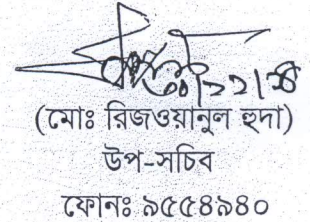 (মোঃ রিজওয়ানুল হুদা)
উপ-সচিব
ফোনঃ ৯৫৫৪৯৪০